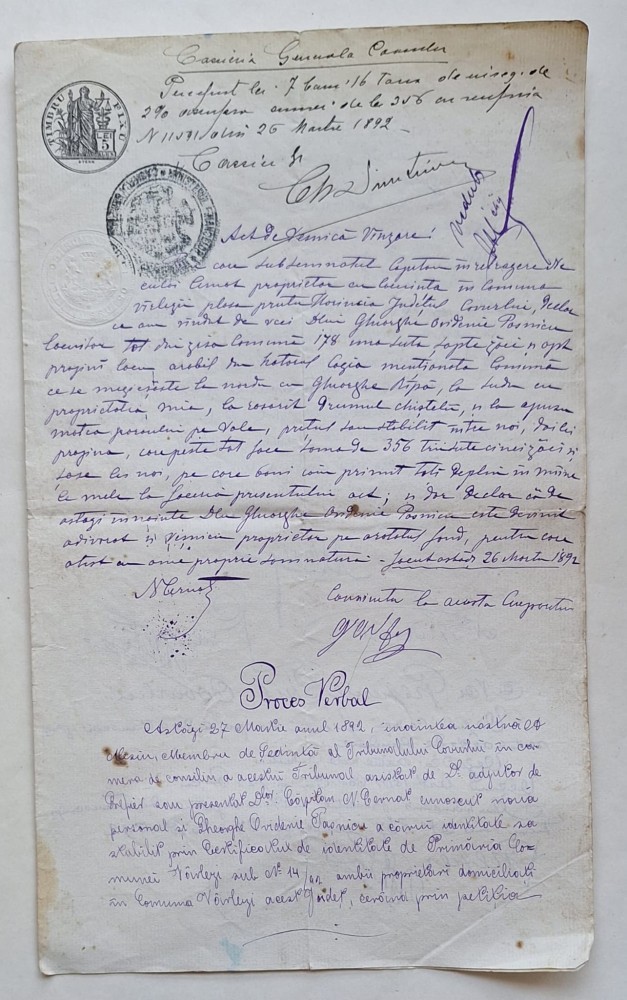 Casieria Generala Covurlui
Perceput lei 7 bani 16 taxa de inreg. de
2% asupra sumei de lei 356 cu recepisa
N 11591 din 26 Martie 1892
Casier G-l
TIMBRU FIXU
LEI 5
vedut
Act de Vecinică Vinzare
sub semnatul Capitan in retragere Ne
culai Cernat proprietar cu locuinta in Comuna
plasa prutu Horincia Judetul Covurlui, Declar
ce am vindut de veci Dlui Gheorghe Ovidenie Pasnicu
locuitor tot din zisa Comună 178 una suta sapte zăci si opt
prajini locu arabil din hatarul menționata Comună
ce se megieseste la nordu cu Gheorghe Ripă, la sudu cu
proprietatea mia, la resarit Drumul chistelu, si la apusu
matca paraului pe Vale, prețul sau stabilit intre noi, doi lei
prajina, care peste tot face soma de 356 trei sute cinci zăci si
sase lei noi, pe care bani iam primit toti Deplin in mine
le mele la facerea presentului act; si dar Declar că de
astazi innainte Dlu Gheorghe Ovidenie Pasnicu este devenit
adiverat si vecinicu proprietar pe aratatul fond, pentru care
atest cu a mia proprie semnatura - facut astadi 26 Martie 1892
N Cernat
Proces Verbal
Astăzi 27 Martie anul 1892, inaintea nóstră A
Membru de Ședință al Tribunalului Covurlui in ca-
mera de consiliu a acestui Tribunal asistat de Dl. adjutor de
Grefier sau presentat Dlor. Căpitan N. Cernat cunoscut nouă
personal și Gheorghe Ovidenie Pasnicu a cărui identitate sa
stabilit prin Certificatul de identitate de Primăria Co-
munei Vârlezi sub No 14/92 ambii proprietari domiciliati
în Comuna Vârlezi acest Județ, cerând prin petiția